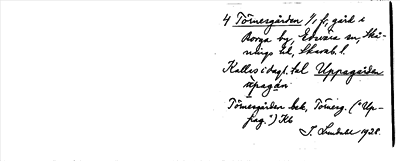 4 Törnesgården 1/1 fr, gård i
Borga by, Edsvära sn, Skå-
nings hd, Skarab. l.
Kallas i dagl. tal Uppagården
ùpagán
Törnesgården bek, Törneg. ("Up-
pag.") Kb
1928.